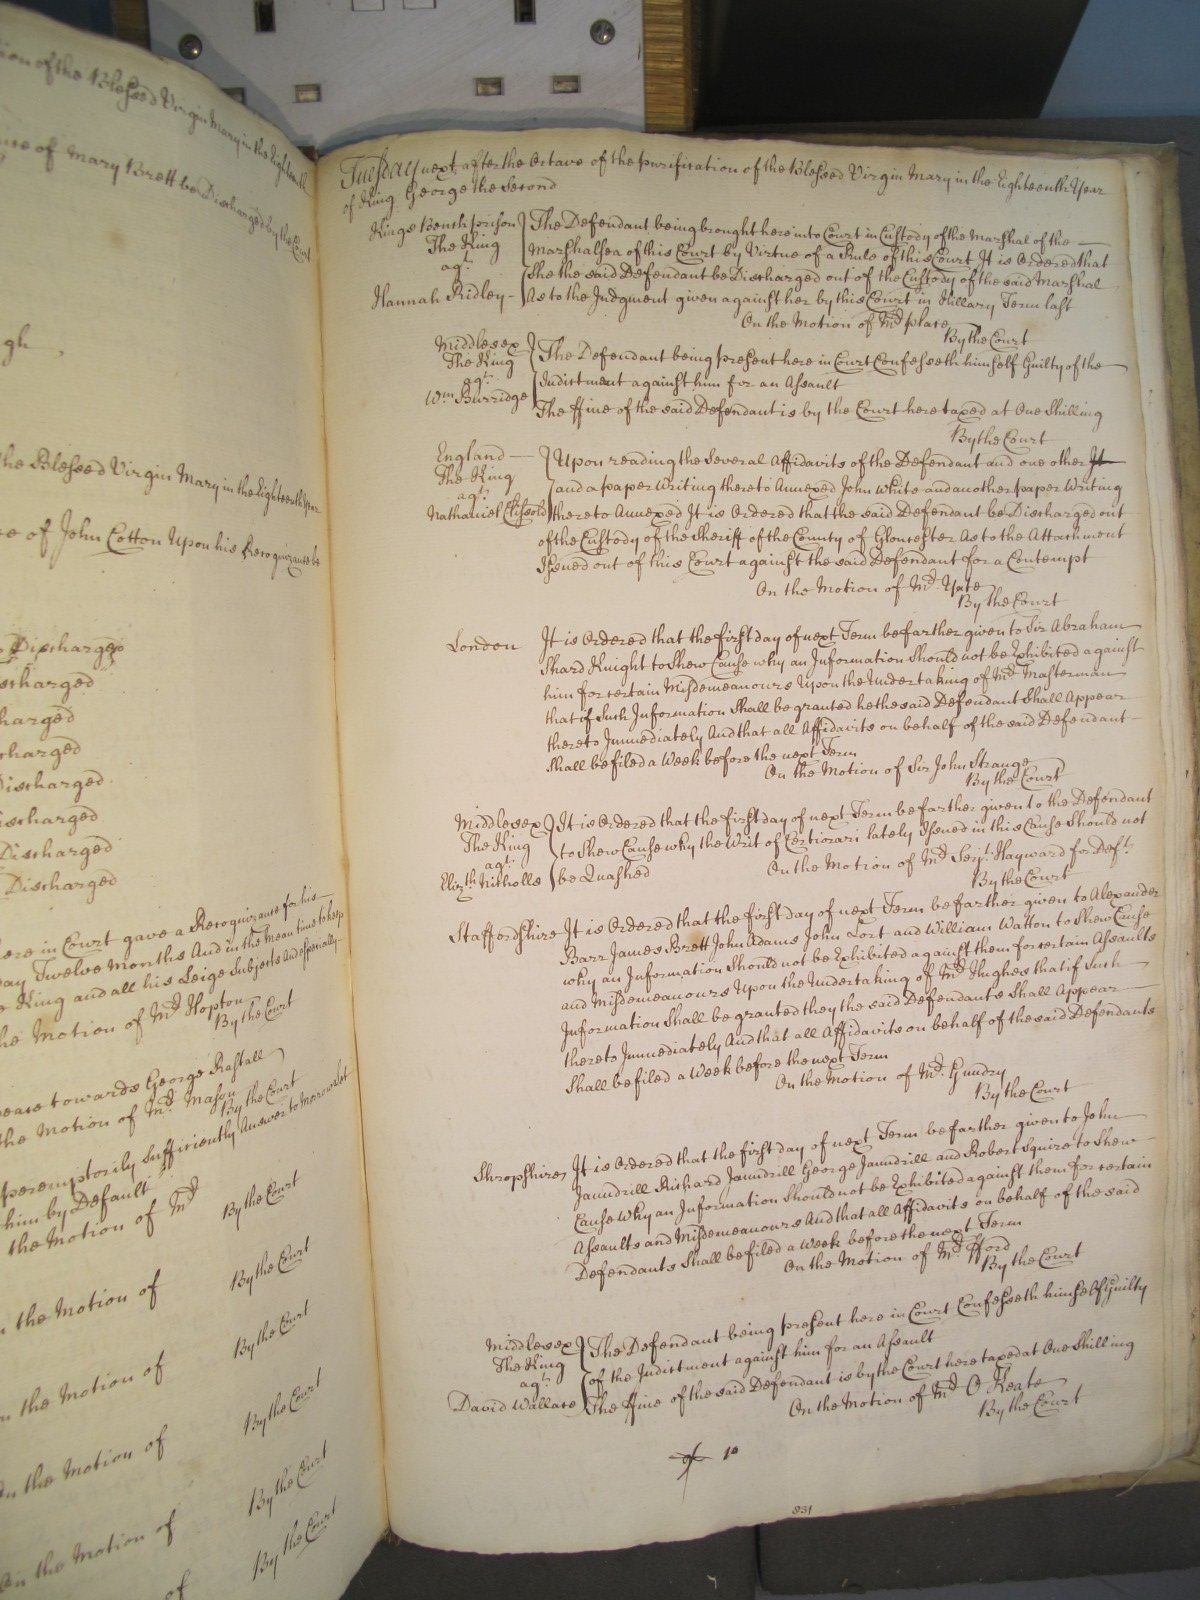 tion of the Blessed Virgin Mary in the Eighteenth
of Mary Brett be Discharged by the Court
gh
the Blessed Virgin Mary in the Eighteenth Year
of John Cotton Upon his Recognizance be
Discharged
charged
harged
charged
Discharged
ischarged
Discharged
Discharged
here in Court gave a Recognizance for his
day Twelve Months And in the mean time to keep
King and all his Leige Subjects And Especially
the Motion of Mr. Hopton
By the Court
peace towards George Rastall
the Motion of Mr. Mason
By the Court
peremptorily Sufficiently Answer to
him by Default
the Motion of Mr
By the Court
the Motion of
By the Court
By the Court
the Motion of
By the Court
on the Motion of
By the Court
On the Motion of
By the Court
of
Tuesday next after the Octave of the purification of the Blessed Virgin Mary in the Eighteenth Year
of King George the Second
Kings Bench prison
The King
agt.
Hannah Ridley
The Defendant being brought here into Court in Custody of the Marshal of the
Marshalsea of this Court by Virtue of a Rule of this Court It is Ordered that
She the said Defendant be Discharged out of the Custody of the said Marshal
As to the Judgment given against her by this Court in Hillary Term last
On the Motion of Mr place
By the Court
Middlesex
The King
agt.
Wm Burridge
The Defendant being present here in Court Confesseth himself Guilty of the
Indictment against him for an Assault
The ffine of the said Defendant is by the Court here taxed at One Shilling
By the Court
England
The King
agt.
Nathaniel Clissold
Upon reading the Several Affidavits of the Defendant and one other It
and a paper Writing thereto Annexed John White and another paper Writing
thereto Annexed It is Ordered that the said Defendant be Discharged out
of the Custody of the Sheriff of the County of Gloucester As to the Attachment
Issued out of this Court against the said Defendant for a Contempt
On the Motion of Mr. Yate
By the Court
London
It is Ordered that the first day of next Term be farther given to Sir Abraham
Shard Knight to Shew Cause why an Information Should not be Exhibited against
him for certain Misdemeanours Upon the Undertaking of Mr. Masterman
that if Such Information Shall be granted he the said Defendant Shall Appear
thereto Immediately And that all Affidavits on behalf of the said Defendant
Shall be filed a Week before the next Term
On the Motion of Sir John Strange
By the Court
Middlesex
The King
agt.
Elizth Nicholls
It is Ordered that the first day of next Term be farther given to the Defendant
to Shew Cause why the Writ of Certiorari lately Issued in this Cause Should not
be Quashed
On the Motion of Mr. Serjt. Hayward for Deft.
By the Court
Staffordshire
It is Ordered that the first day of next Term be farther given to Alexander
Barr James Brett John Adams John Lort and William Watton to Shew Cause
why an Information Should not be Exhibited against them for certain Assaults
and Misdemeanours Upon the Undertaking of Mr. Hughes that if Such
Information Shall be granted they the said Defendants Shall Appear
thereto Immediately And that all Affidavits on behalf of the said Defendants
Shall be filed a Week before the next Term
On the Motion of Mr. Gundry
By the Court
Shropshire
It is Ordered that the first day of next Term be farther given to John
Jaundrill Richard Jaundrill George Jaundrill and Robert Squire to Shew
Cause Why an Information Should not be Exhibited against them for certain
Assaults and Misdemeanours And that all Affidavits on behalf of the said
Defendants Shall be filed a Week before the next Term
On the Motion of Mr. fford
By the Court
Middlesex
The King
agt.
David Wallace
The Defendant being present here in Court Confesseth himself Guilty
of the Indictment against him for an Assault
The ffine of the said Defendant is by the Court here taxed at One Shilling
On the Motion of Mr O Keate
By the Court
10
851